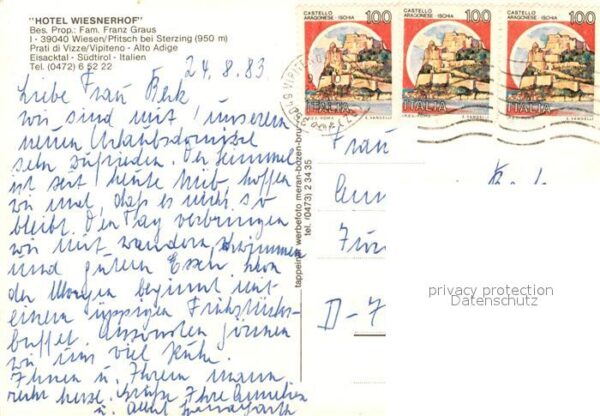 "HOTEL WIESNERHOF"
Bes. Prop.: Fam. Franz Graus
I - 39040 Wiesen/Pfitsch bei Sterzing (950 m)
Prati di Vizze/Vipiteno - Alto Adige
Eisacktal - Südtirol - Italien
Tel. (0472) 6 52 22
24.8.83
Liebe Frau Berk
wir sind mit unserem
neuen Urlaubsdomizil
sehr zufrieden. Der Himmel
ist seit heute trüb, hoffen
wir mal, daß es nicht so
bleibt. Den Tag verbringen
wir mit wandern, schwimmen
und gutem Essen, schon
der Morgen beginnt mit
einem üppigen Frühstücks-
buffet. Ansonsten gönnen
wir uns viel Ruhe.
Ihnen u. Ihrem Mann
recht herzl. Grüße Ihre Annelies
u. Albert
tappeiner werbefoto meran-bozen-bru
tel. (0473) 2 34 35
CASTELLO
ARAGONESE - ISCHIA
100
ITALIA
CASTELLO
ARAGONESE - ISCHIA
100
ITALIA
CASTELLO
ARAGONESE - ISCHIA
100
ITALIA
Frau
D-7
privacy protection
Datenschutz